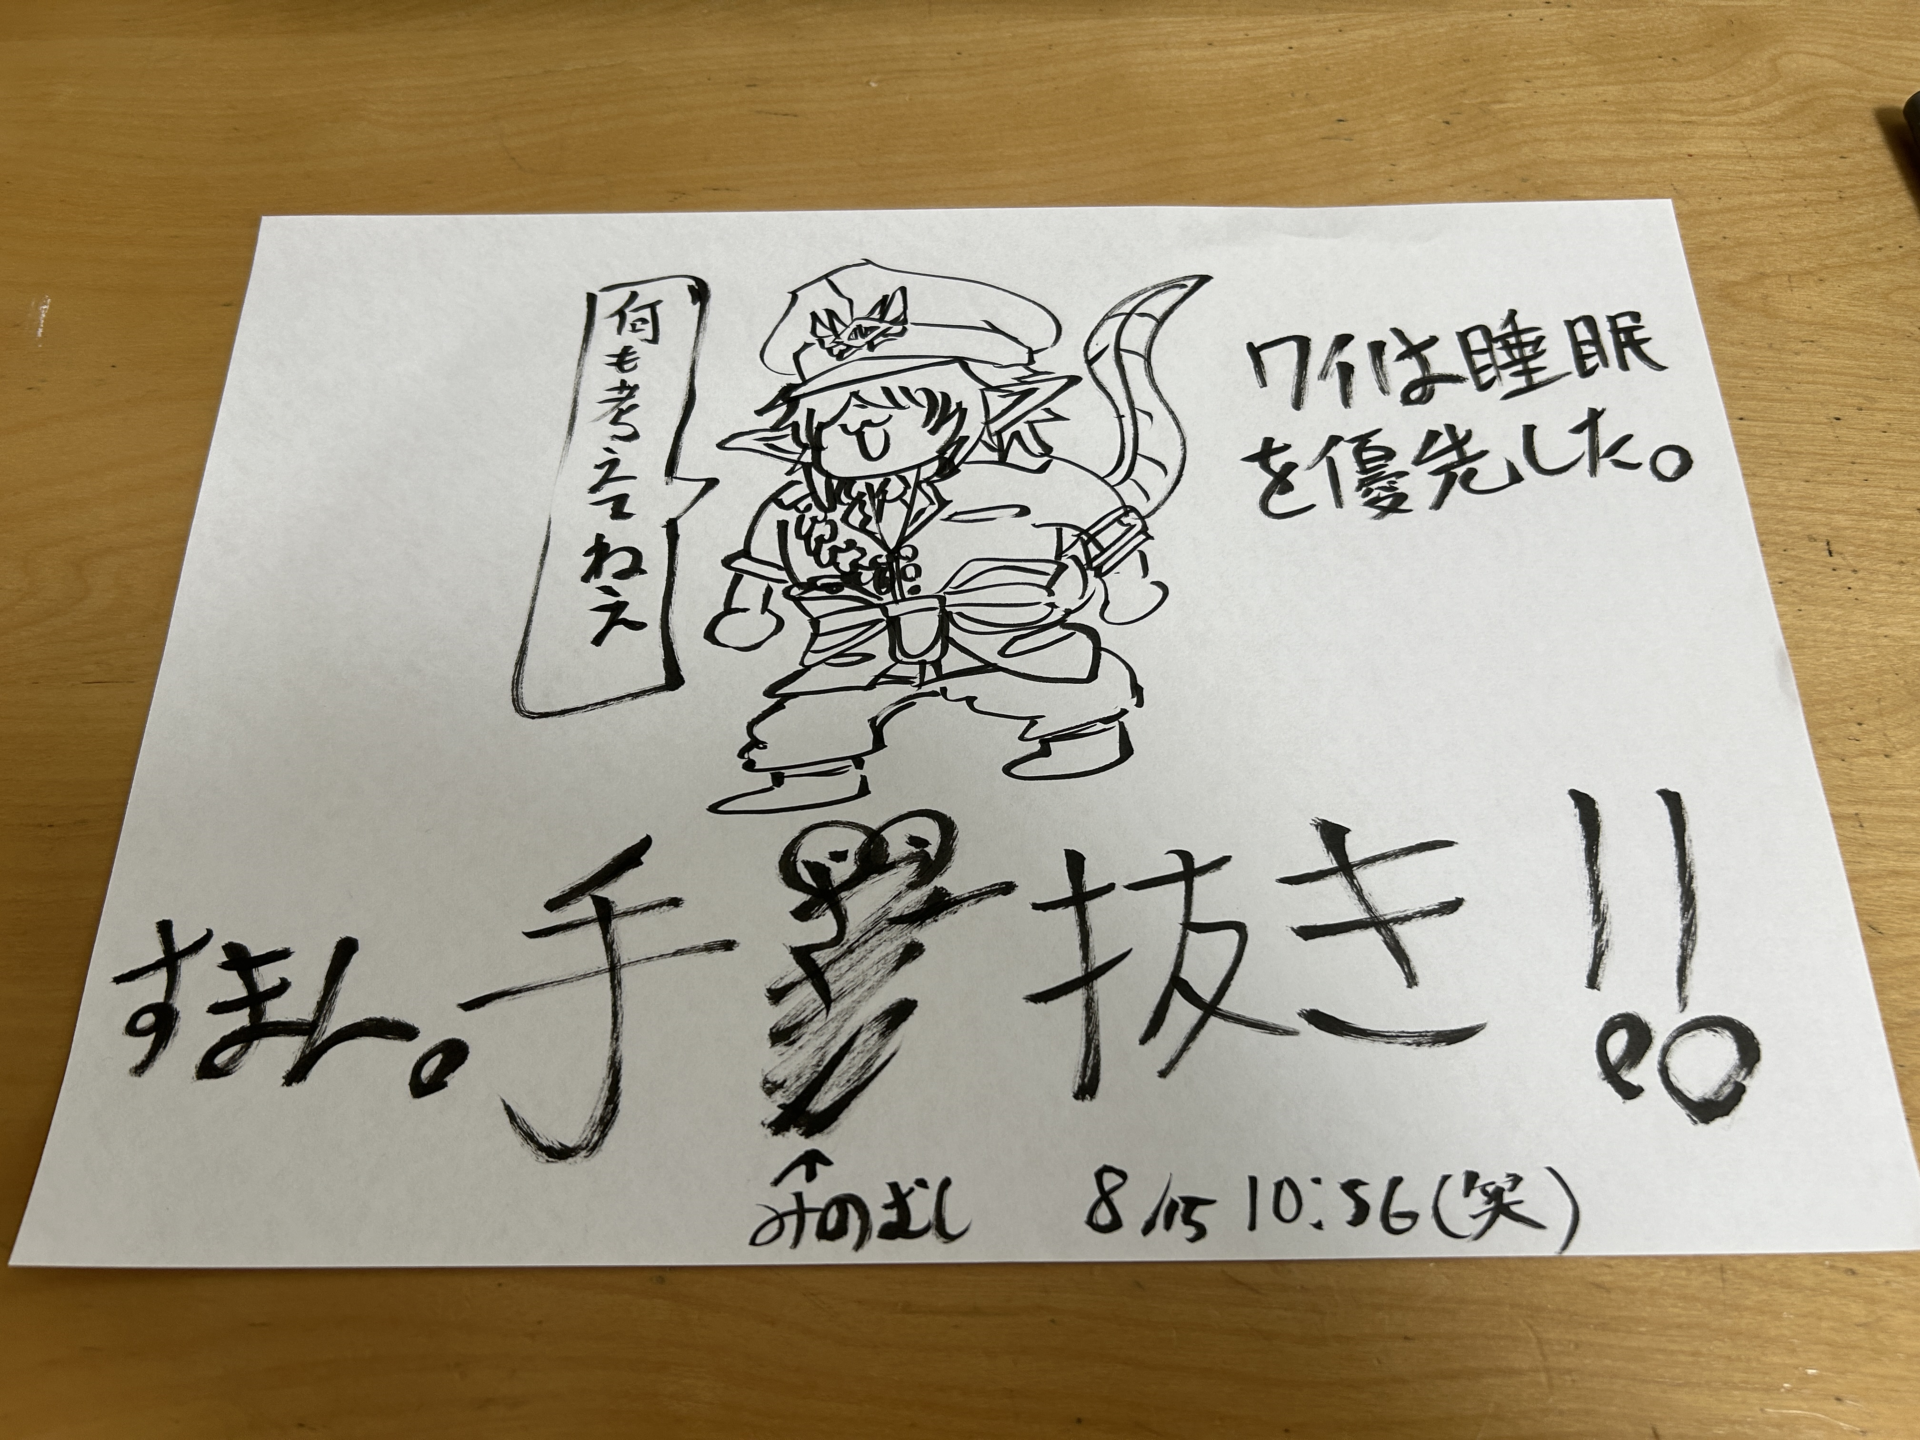 ワイは睡眠
を優先した。
何も考えてねえ
すまん。手抜き!!
↑
みのむし
8/15 10:56(笑)